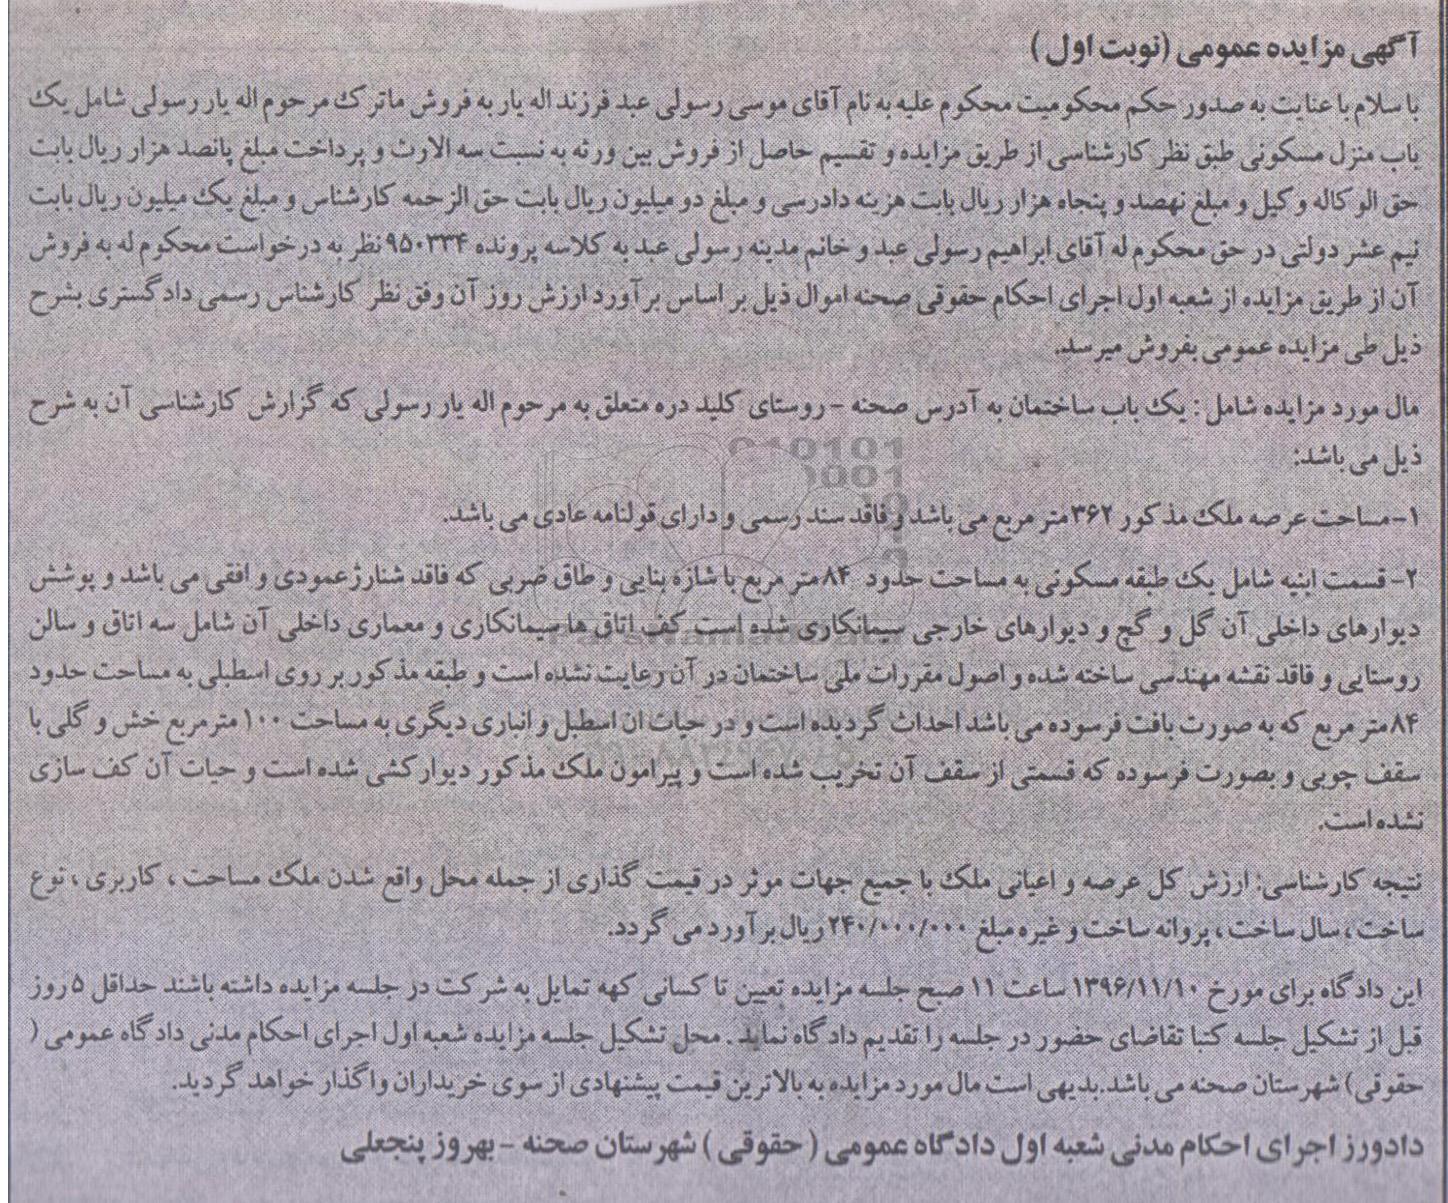 آگهی مزایده عمومی (نوبت اول)
با سلام با عنایت به صدور حکم محکومیت محکوم علیه به نام آقای موسی رسولی عبد فرزند اله یار به فروش ماترک مرحوم اله یار رسولی شامل یک
باب منزل مسکونی طبق نظر کارشناسی از طریق مزایده و تقسیم حاصل از فروش بین ورثه به نسبت سه الارث و پرداخت مبلغ پانصد هزار ریال بابت
حق الوکاله وکیل و مبلغ نهصد و پنجاه هزار ریال بابت هزینه دادرسی و مبلغ دو میلیون ریال بابت حق الزحمه کارشناس و مبلغ یک میلیون ریال بابت
نیم عشر دولتی در حق محکوم له آقای ابراهیم رسولی عبد و خانم مدینه رسولی عبد به کلاسه پرونده ۹۵۰۳۳۴ نظر به درخواست محکوم له به فروش
آن از طریق مزایده از شعبه اول اجرای احکام حقوقی صحنه اموال ذیل بر اساس برآورد ارزش روز آن وفق نظر کارشناس رسمی دادگستری بشرح
ذیل طی مزایده عمومی بفروش میرسد.
مال مورد مزایده شامل : یک باب ساختمان به آدرس صحنه - روستای کلید دره متعلق به مرحوم اله یار رسولی که گزارش کارشناسی آن به شرح
ذیل می باشد:
۱- مساحت عرصه ملک مذکور ۳۶۲ متر مربع می باشد و فاقد سند رسمی و دارای قولنامه عادی می باشد.
۲- قسمت ابنیه شامل یک طبقه مسکونی به مساحت حدود ۸۴ متر مربع با شازه بنایی و طاق ضربی که فاقد شنارژ عمودی و افقی می باشد و پوشش
دیوارهای داخلی آن گل و گچ و دیوارهای خارجی سیمانکاری شده است کف اتاق ها سیمانکاری و معماری داخلی آن شامل سه اتاق و سالن
روستایی و فاقد نقشه مهندسی ساخته شده و اصول مقررات ملی ساختمان در آن رعایت نشده است و طبقه مذکور بر روی اسطبلی به مساحت حدود
۸۴ متر مربع که به صورت بافت فرسوده می باشد احداث گردیده است و در حیات ان اسطبل و انباری دیگری به مساحت ۱۰۰ مترمربع خش و گلی با
سقف چوبی و بصورت فرسوده که قسمتی از سقف آن تخریب شده است و پیرامون ملک مذکور دیوارکشی شده است و حیات آن کف سازی
نشده است.
نتیجه کارشناسی: ارزش کل عرصه و اعیانی ملک با جمیع جهات موثر در قیمت گذاری از جمله محل واقع شدن ملک مساحت ، کاربری ، نوع
ساخت ، سال ساخت ، پروانه ساخت و غیره مبلغ ۲۴۰/۰۰۰/۰۰۰ ریال برآورد می گردد.
این دادگاه برای مورخ ۱۳۹۶/۱۱/۱۰ ساعت ۱۱ صبح جلسه مزایده تعیین تا کسانی کهه تمایل به شرکت در جلسه مزایده داشته باشند حداقل ۵ روز
قبل از تشکیل جلسه کتبا تقاضای حضور در جلسه را تقدیم دادگاه نماید . محل تشکیل جلسه مزایده شعبه اول اجرای احکام مدنی دادگاه عمومی (
حقوقی) شهرستان صحنه می باشد.بدیهی است مال مورد مزایده به بالاترین قیمت پیشنهادی از سوی خریداران واگذار خواهد گردید.
دادورز اجرای احکام مدنی شعبه اول دادگاه عمومی ( حقوقی ) شهرستان صحنه - بهروز پنجعلی